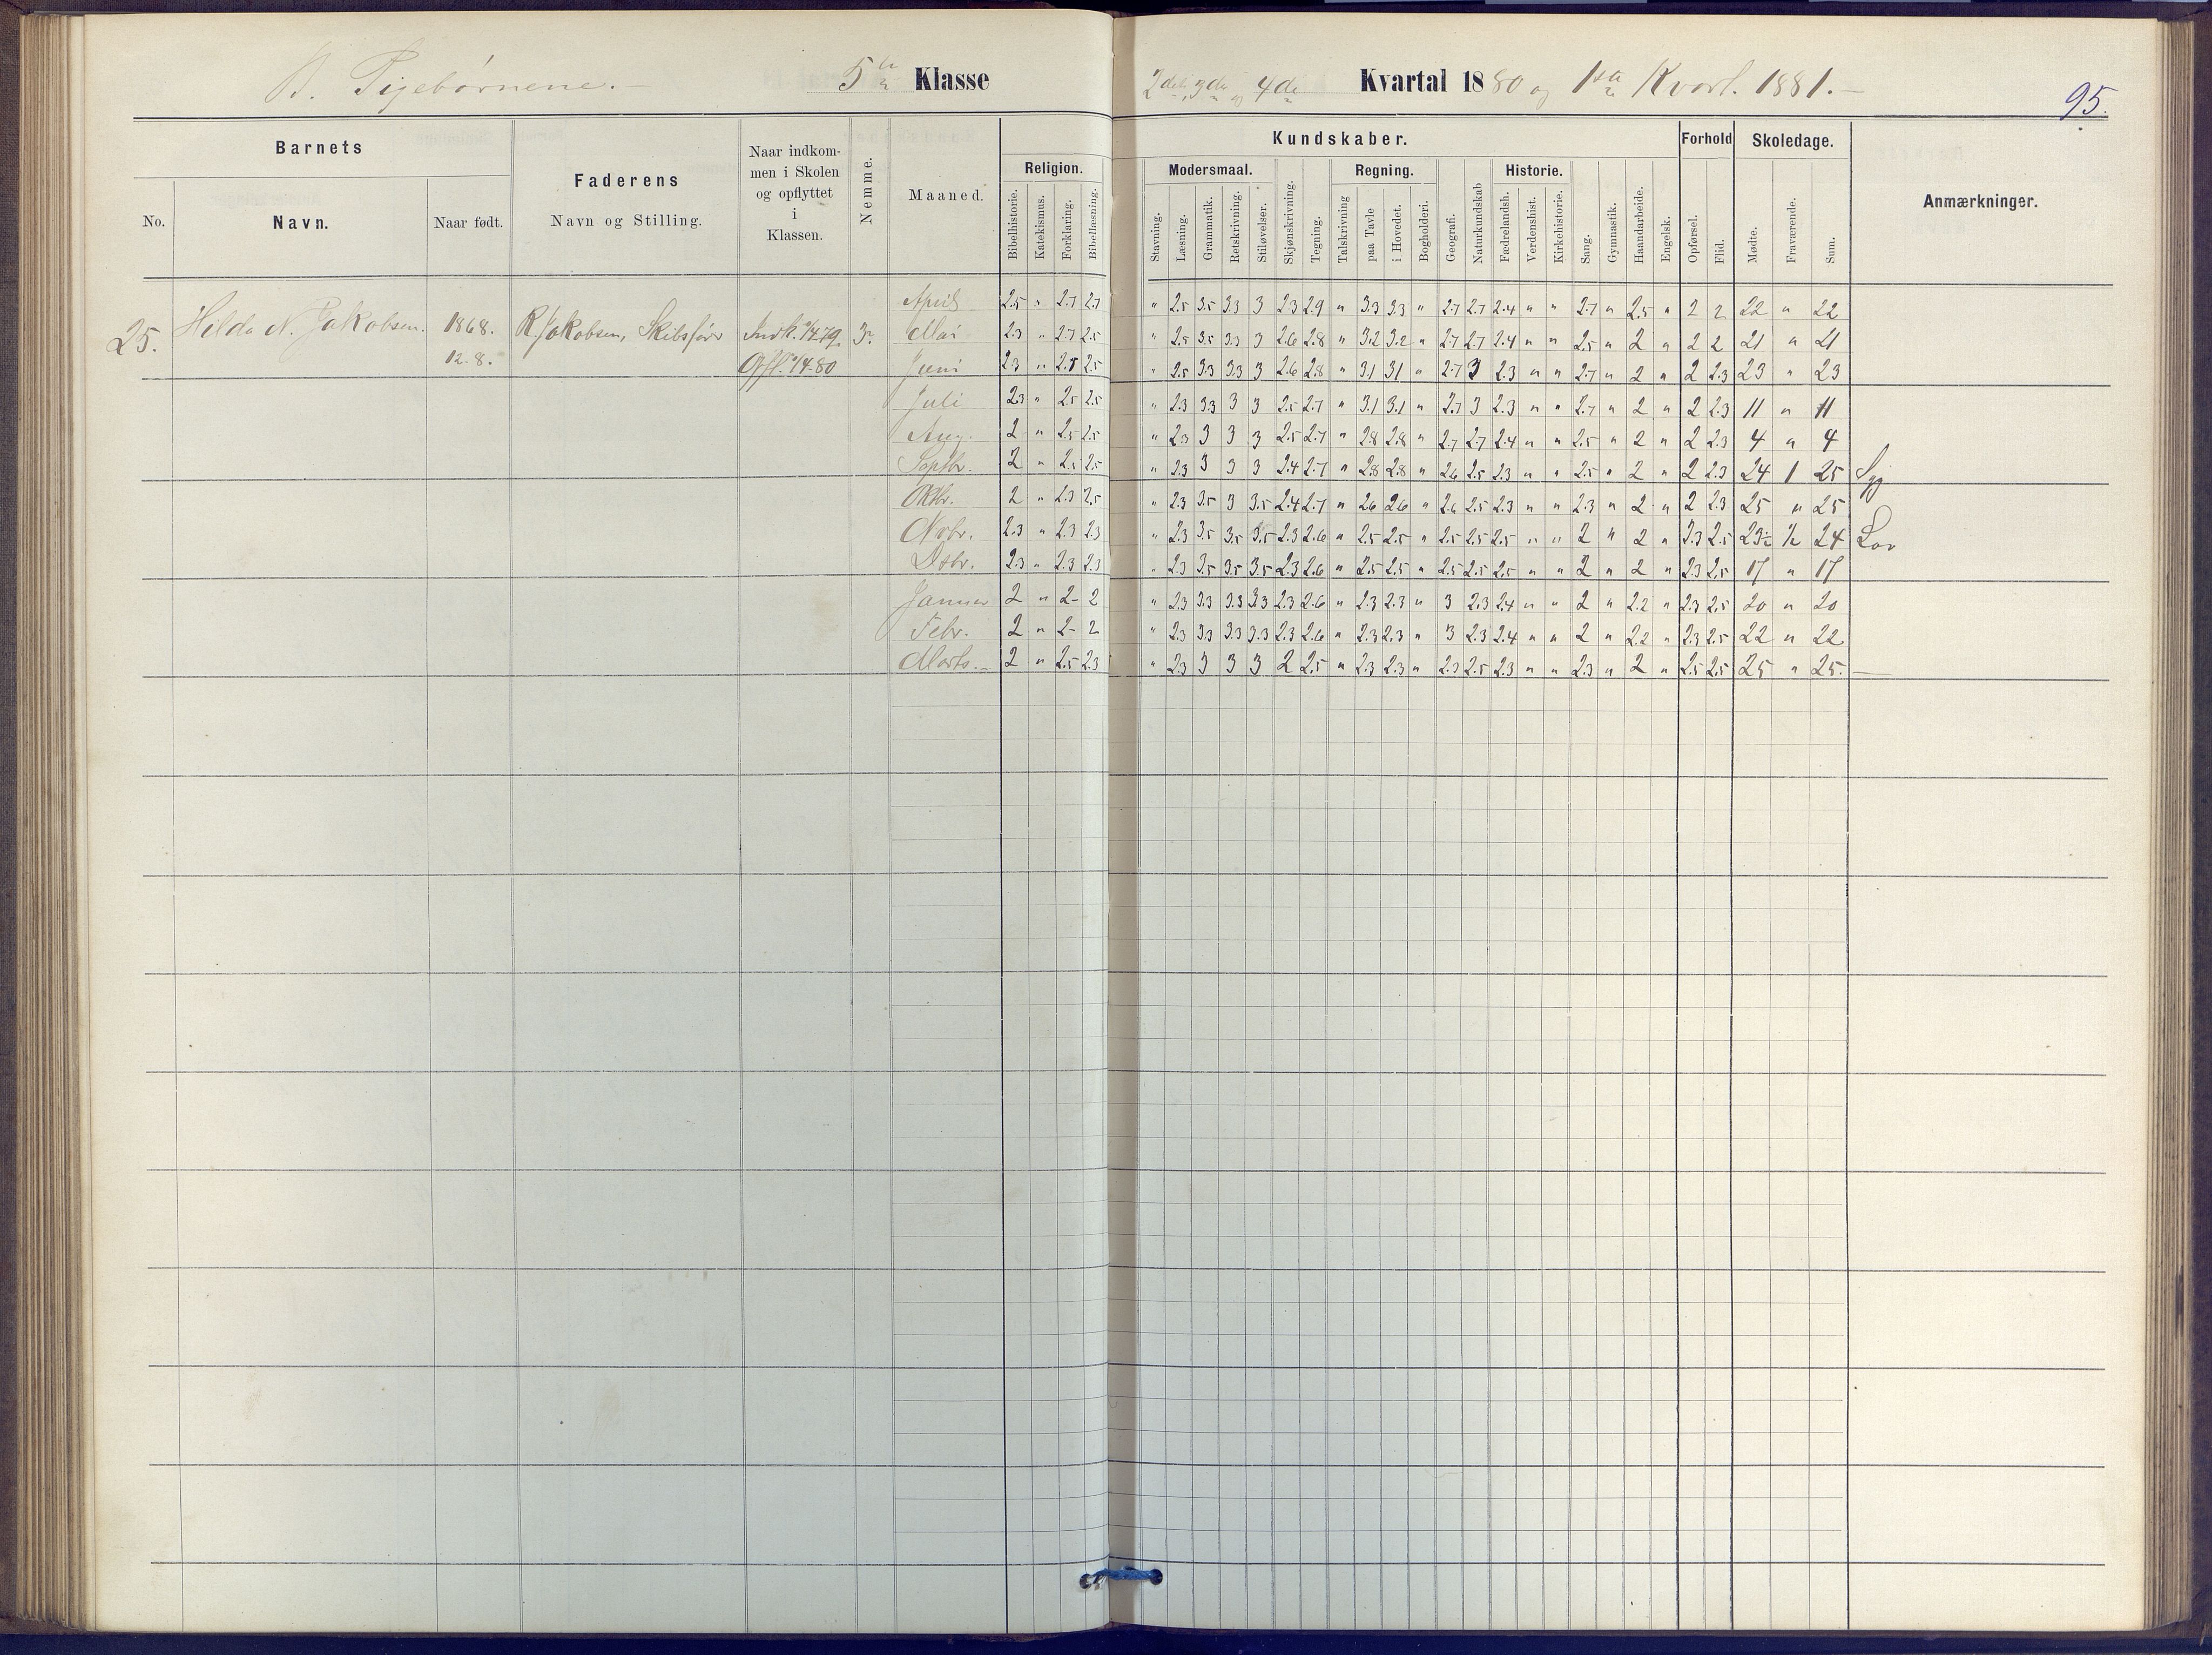 B. Pigebørnene.—
5te Klasse
2det, 3die og 4de Kvartal 1880 og 1ste Kvart. 1881.—
95.
Barnets
No.
Navn.
Naar født.
Faderens
Navn og Stilling.
Naar indkom-
men i Skolen
og opflyttet
i
Klassen.
Nemme.
Maaned.
Kundskaber.
Religion.
Bibelhistorie. Katekismus. Forklaring. Bibellæsning.
Modersmaal.
Stavning. Læsning. Grammatik. Retskrivning. Stiløvelser. Skjønskrivning. Tegning.
Regning.
Talskrivning paa Tavle i Hovedet. Bogholderi. Geografi. Naturkundskab
Historie.
Fædrelandsh. Verdenshist. Kirkehistorie. Sang. Gymnastik. Haandarbeide. Engelsk.
Forhold
Opførsel. Flid.
Skoledage.
Mødte. Fraværende. Sum.
Anmærkninger.
25. Hilda N. Jakobsen. 1868. 12-8. R. Jakobsen, Skibsfører Indk. 1/4 79. Opfl. 1/4-80 3.
April 2.5 " 2.7 2.7 " 2.5 3.5 3.3 3 2.3 2.9 " 3.3 3.3 " 2.7 2.7 2.4 " " 2.7 " 2.5 " 2 2 22 " 22
Mai 2.3 " 2.7 2.5 " 2.5 3.5 3.3 3 2.6 2.8 " 3.2 3.2 " 2.7 2.7 2.4 " " 2.5 " 2 " 2 2 21 " 21
Juni 2.3 " 2.5 2.5 " 2.5 3.3 3.3 3 2.6 2.8 " 3.1 3.1 " 2.7 3 2.3 " " 2.7 " 2 " 2 2.3 23 " 23
Juli 2.3 " 2.5 2.5 " 2.3 3.3 3 3 2.5 2.7 " 3.1 3.1 " 2.7 3 2.3 " " 2.7 " 2 " 2 2.3 11 " 11
Aug. 2 " 2.5 2.5 " 2.3 3 3 3 2.5 2.7 " 2.8 2.8 " 2.7 2.7 2.4 " " 2.5 " 2 " 2 2.3 4 " 4
Septbr. 2 " 2.5 2.5 " 2.3 3 3 3 2.4 2.7 " 2.8 2.8 " 2.6 2.5 2.3 " " 2.5 " 2 " 2 2.3 24 1 25 Syg
Oktbr. 2 " 2.3 2.5 " 2.3 3.5 3 3.5 2.4 2.7 " 2.6 2.6 " 2.6 2.5 2.3 " " 2.3 " 2 " 2 2.3 25 " 25
Novbr. 2.3 " 2.3 2.3 " 2.3 3.5 3.5 3.5 2.3 2.6 " 2.5 2.5 " 2.5 2.5 2.5 " " 2 " 2 " 2.3 2.5 23½ ½ 24 Lov
Dsbr. 2.3 " 2.3 2.3 " 2.3 3.5 3.5 3.5 2.3 2.6 " 2.5 2.5 " 2.5 2.5 2.5 " " 2 " 2 " 2.3 2.5 17 " 17
Januar 2 " 2- 2 " 2.3 3.3 3.3 3.3 2.3 2.6 " 2.3 2.3 " 3 2.3 2.4 " " 2 " 2.2 " 2.3 2.5 20 " 20
Febr. 2 " 2- 2 " 2.3 3.3 3.3 3.3 2.3 2.6 " 2.3 2.3 " 3 2.3 2.4 " " 2 " 2.2 " 2.3 2.5 22 " 22
Marts.- 2 " 2.5 2.3 " 2.3 3 3 3 2 2.5 " 2.3 2.3 " 2.3 2.5 2.3 " " 2.3 " 2 " 2.5 2.5 25 " 25. —